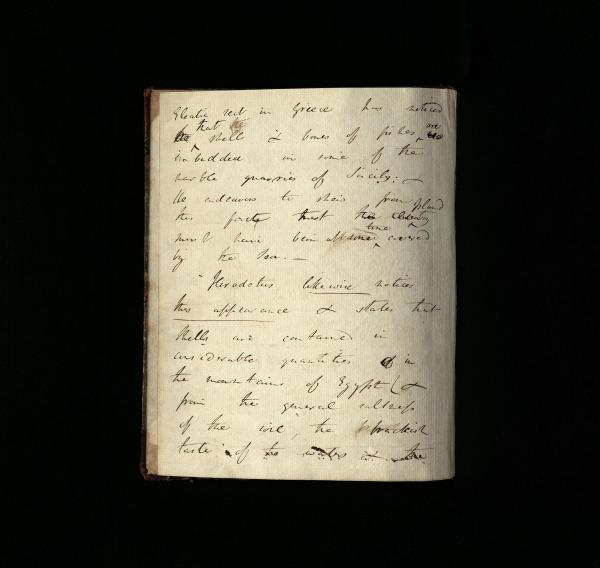 Eleatic sect in Greece has noticed
that the
shells & bones of fishes are
imbedded in some of the
marble quarries of Sicily: &
He endeavors to shew from
this fact that the Island
must have been at some time covered
by the Sea. —
"Herodotus likewise notices
this appearance & states that
Shells are contained in
considerable quantities in
the mountains of Egypt (&
from the general saltness
of the soil", the brackish
taste of the waters